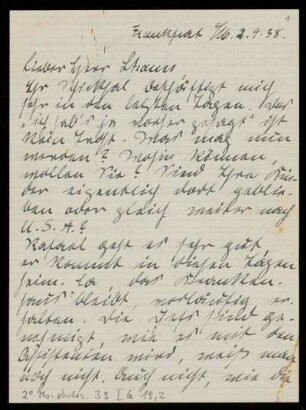 1
Frankfurt /M. 2.9.38.
Lieber Herr Strauss
Ihr Schicksal beschäftigt mich
sehr in den letzten Tagen. Das
"ich hab's ja vorher gesagt" ist
kein Trost. Was mag nun
werden? Wohin können,
wollen Sie? Sind Ihre Kin-
der eigentlich dort geblie-
ben oder gleich weiter nach
U.S.A.?
Rafael geht es sehr gut
er kommt in diesen Tagen
heim. La das Kranken-
haus bleibt, vorläufig er-
halten. Die sind ge-
nehmigt, wie es mit den
Assistenten wird, weiß man
noch nicht. Auch nicht, wie die
2° Ms. philos. 39 I G 19,2